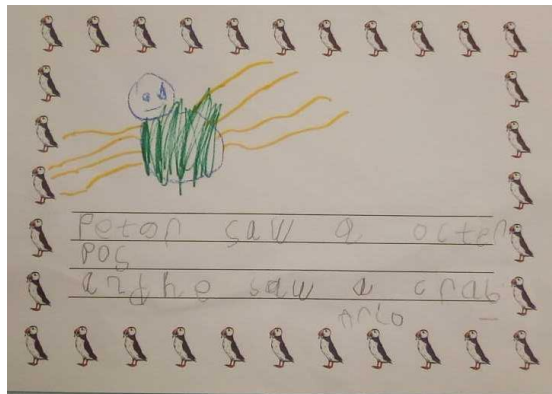 Petar saw a octer
pos
anphe saw a crab
Arlo